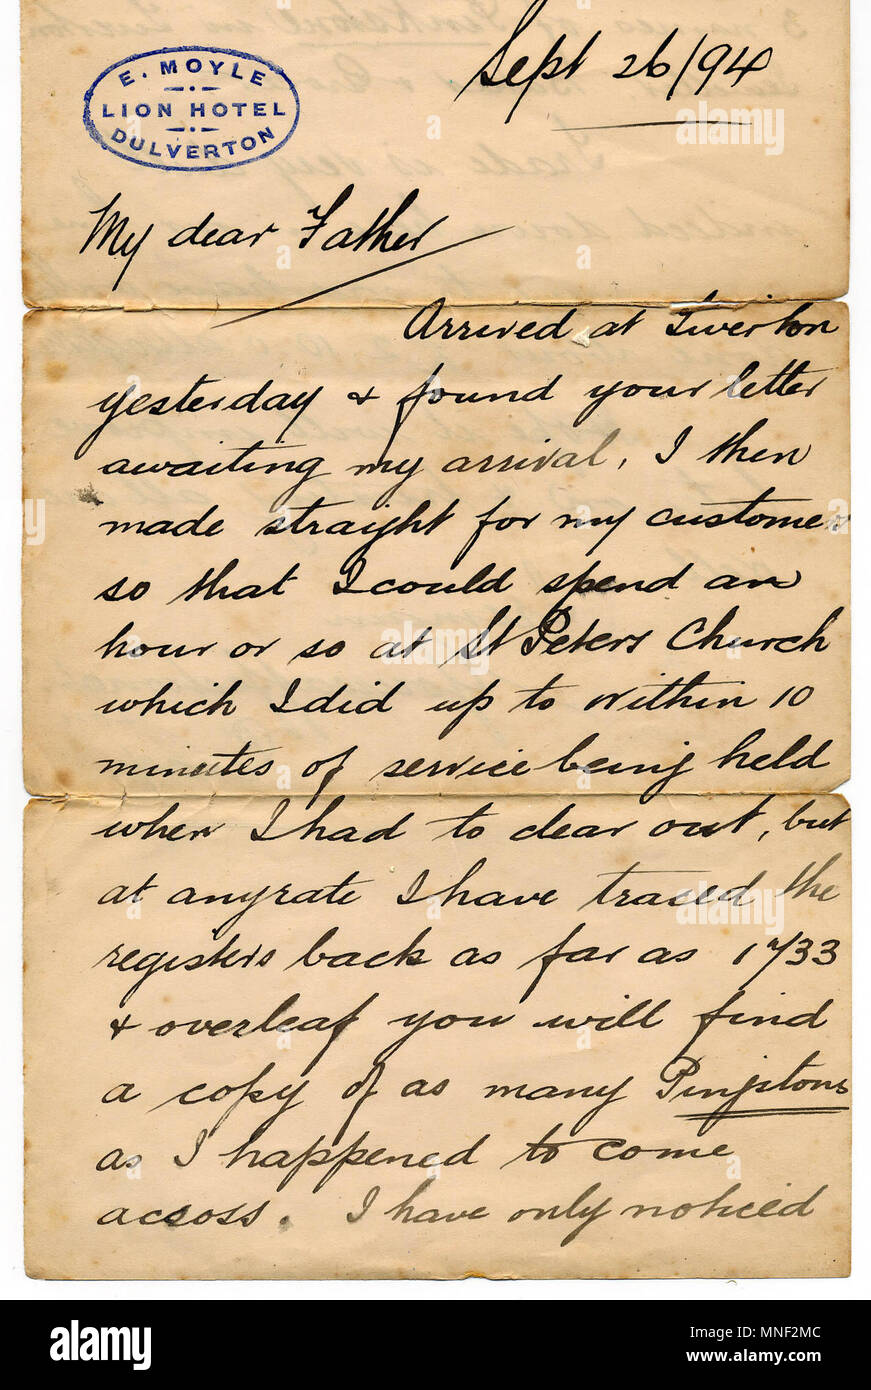 Sept 26/94
E. MOYLE
LION HOTEL
DULVERTON
My dear Father
Arrived at Tiverton
yesterday & found your letter
awaiting my arrival, I then
made straight for my customer
so that I could spend an
hour or so at St Peters Church
which I did up to within 10
minutes of service being held
when I had to clear out, but
at anyrate I have traced the
registers back as far as 1733
& overleaf you will find
a copy of as many Pingstons
as I happened to come
across. I have only noticed
alamy
Image ID: MNF2MC
www.alamy.com